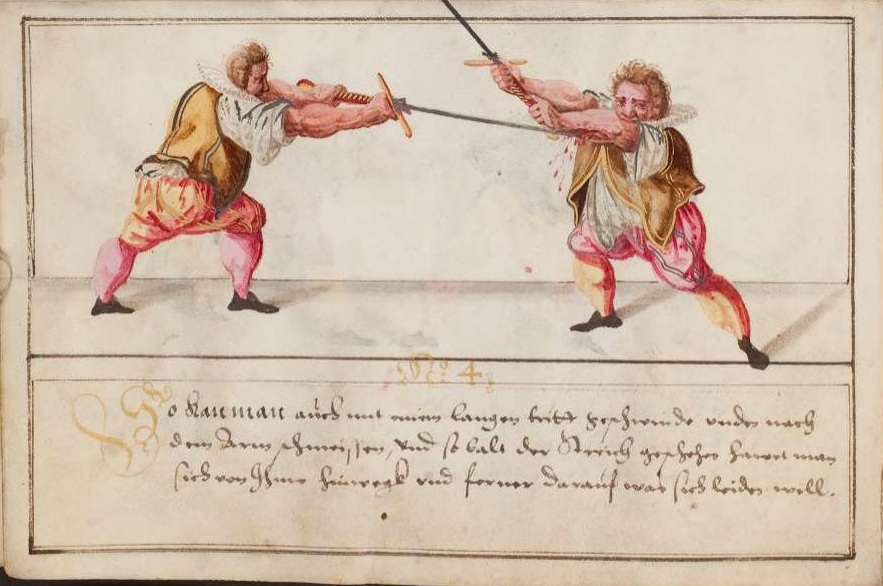 No 4.
So kan man auch mit einem langen tritt geschwinde unden nach
dem Arm schmeissen, und so balt der Streich geschehen hawet man
sich von Ihme hinwegk und ferner darauf was sich leiden will.